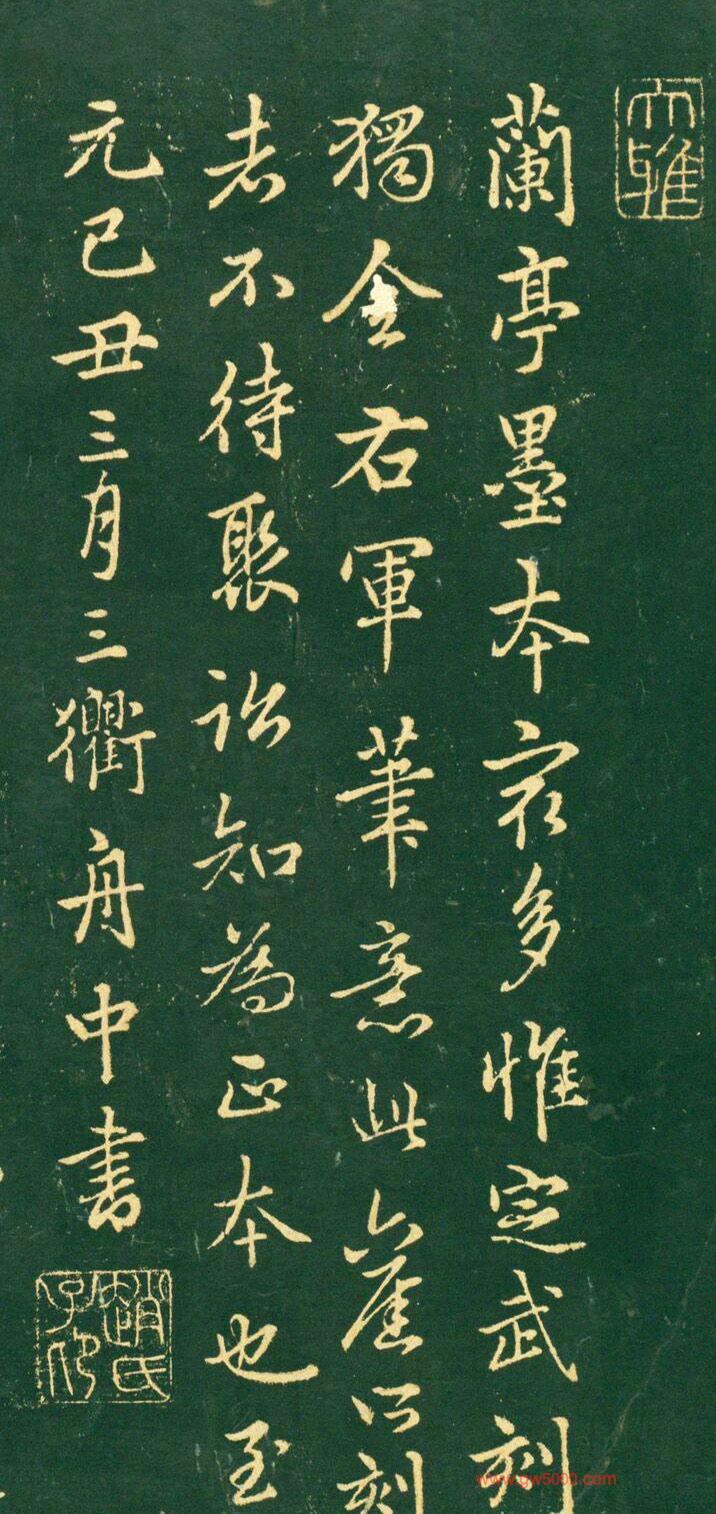 大雅
蘭亭墨本宐多惟定武刻
獨全右軍筆意此六舊所刻
者不待聚訟知為正本也至
元己丑三月三衢舟中書
趙氏子印
www.gw5000.com